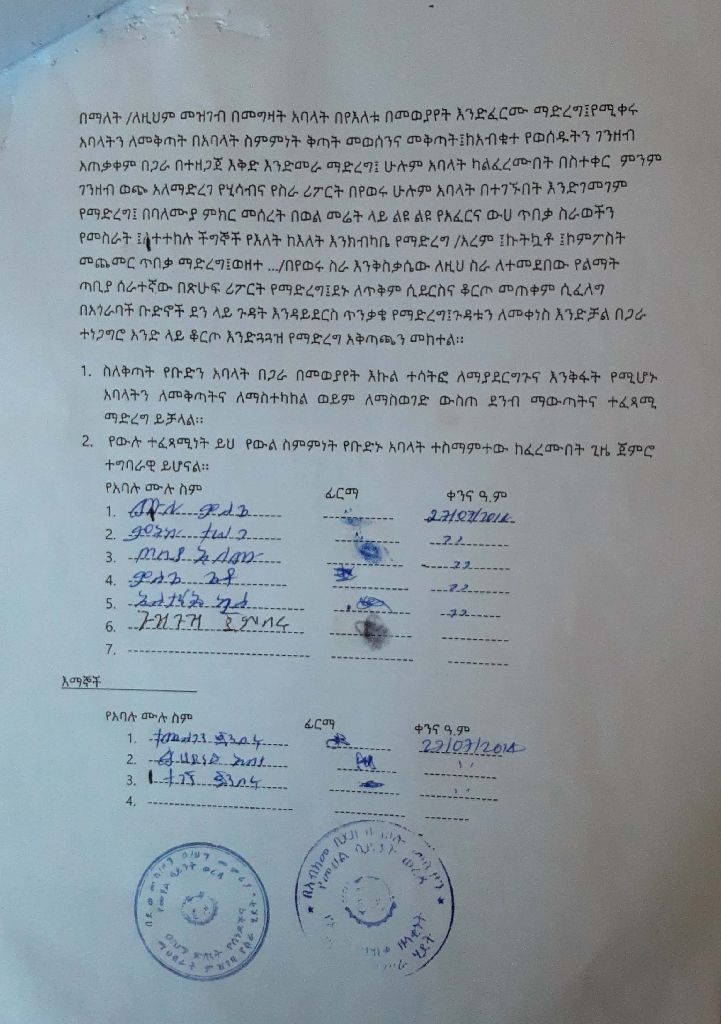 በማለት /ለዚህም መዝገብ በመግዛት አባላት በየእለቱ በመወያየት እንድፈርሙ ማድረግ፤የሚቀሩ
አባላትን ለመቅጣት በአባላት ስምምነት ቅጣት መወሰንና መቅጣት፤ከአብቁተ የወሰዱትን ገንዘብ
አጠቃቀም በጋራ በተዘጋጀ እቅድ እንድመራ ማድረግ፤ ሁሉም አባላት ካልፈረሙበት በስተቀር ምንም
ገንዘብ ወጭ አለማድረገ የሂሳብና የስራ ሪፖርት በየወሩ ሁሉም አባላት በተገኙበት እንድገመገም
የማድረግ፤ በባለሙያ ምክር መሰረት በወል መሬት ላይ ልዩ ልዩ የአፈርና ውሀ ጥበቃ ስራወችን
የመስራት ፤ለተተከሉ ችግኞች የእለት ከእለት እንክብካቤ የማድረግ /አረም ፤ኩትኳቶ ፤ኮምፖስት
መጨመር ጥበቃ ማድረግ፤ወዘተ .../በየወሩ ስራ እንቅስቃሴው ለዚህ ስራ ለተመደበው የልማት
ጣቢያ ሰራተኛው በጽሁፍ ሪፖርት የማድረግ፤ደኑ ለጥቅም ሲደርስና ቆርጦ መጠቀም ሲፈለግ
በአጎራባች ቡድኖች ደን ላይ ጉዳት እንዳይደርስ ጥንቃቄ የማድረግ፤ጉዳቱን ለመቀነስ እንድቻል በጋራ
ተነጋግሮ አንድ ላይ ቆርጦ እንድጓጓዝ የማድረግ አቅጣጫን መከተል።
1. ስለቅጣት የቡድን አባላት በጋራ በመወያየት እኩል ተሳትፎ ለማያደርግጉና እንቅፋት የሚሆኑ
አባላትን ለመቅጣትና ለማስተካከል ወይም ለማስወገድ ውስጠ ደንብ ማውጣትና ተፈጻሚ
ማድረግ ይቻላል።
2. የውሉ ተፈጻሚነት ይህ የውል ስምምነት የቡድኑ አባላት ተስማምተው ከፈረሙበት ጊዜ ጀምሮ
ተግባራዊ ይሆናል።
የአባሉ ሙሉ ስም ፊርማ ቀንና ዓ.ም
1. 27/07/2014
2. ,,
3. ,,
4. ,,
5. ,,
6.
7.
እማኞች
የአባሉ ሙሉ ስም ፊርማ ቀንና ዓ.ም
1. 27/07/2014
2. ,,
3. ,,
4.